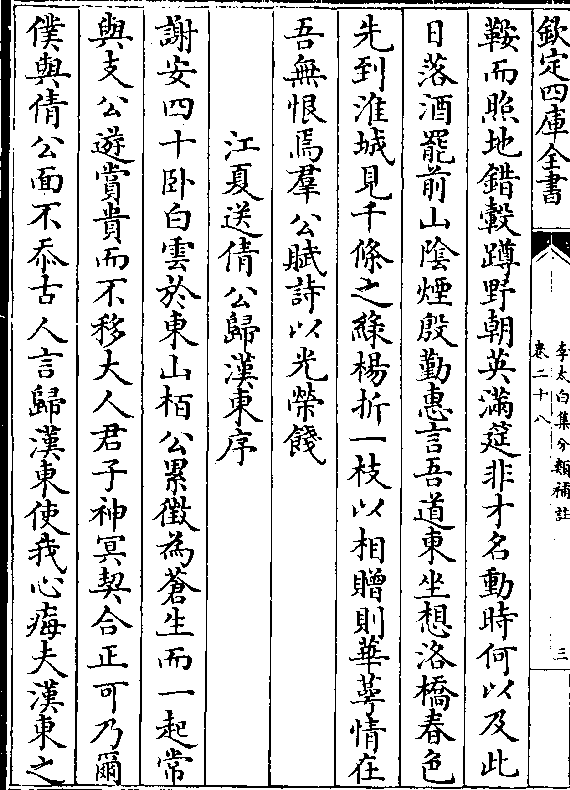 欽定四庫全書
李太白集分類補註
卷二十八
三
鞍而照地錯轂蹲野朝英滿筵非才名動時何以及此
日落酒罷前山陰煙殷勤惠言吾道東坐想洛橋春色
先到淮城見千條之綠楊折一枝以相贈則華萼情在
吾無恨焉羣公賦詩以光榮餞
江夏送倩公歸漢東序
謝安四十卧白雲於東山栢公累徵為蒼生而一起常
與支公遊賞貴而不移大人君子神冥契合正可乃爾
僕與倩公面不忝古人言歸漢東使我心痗夫漢東之